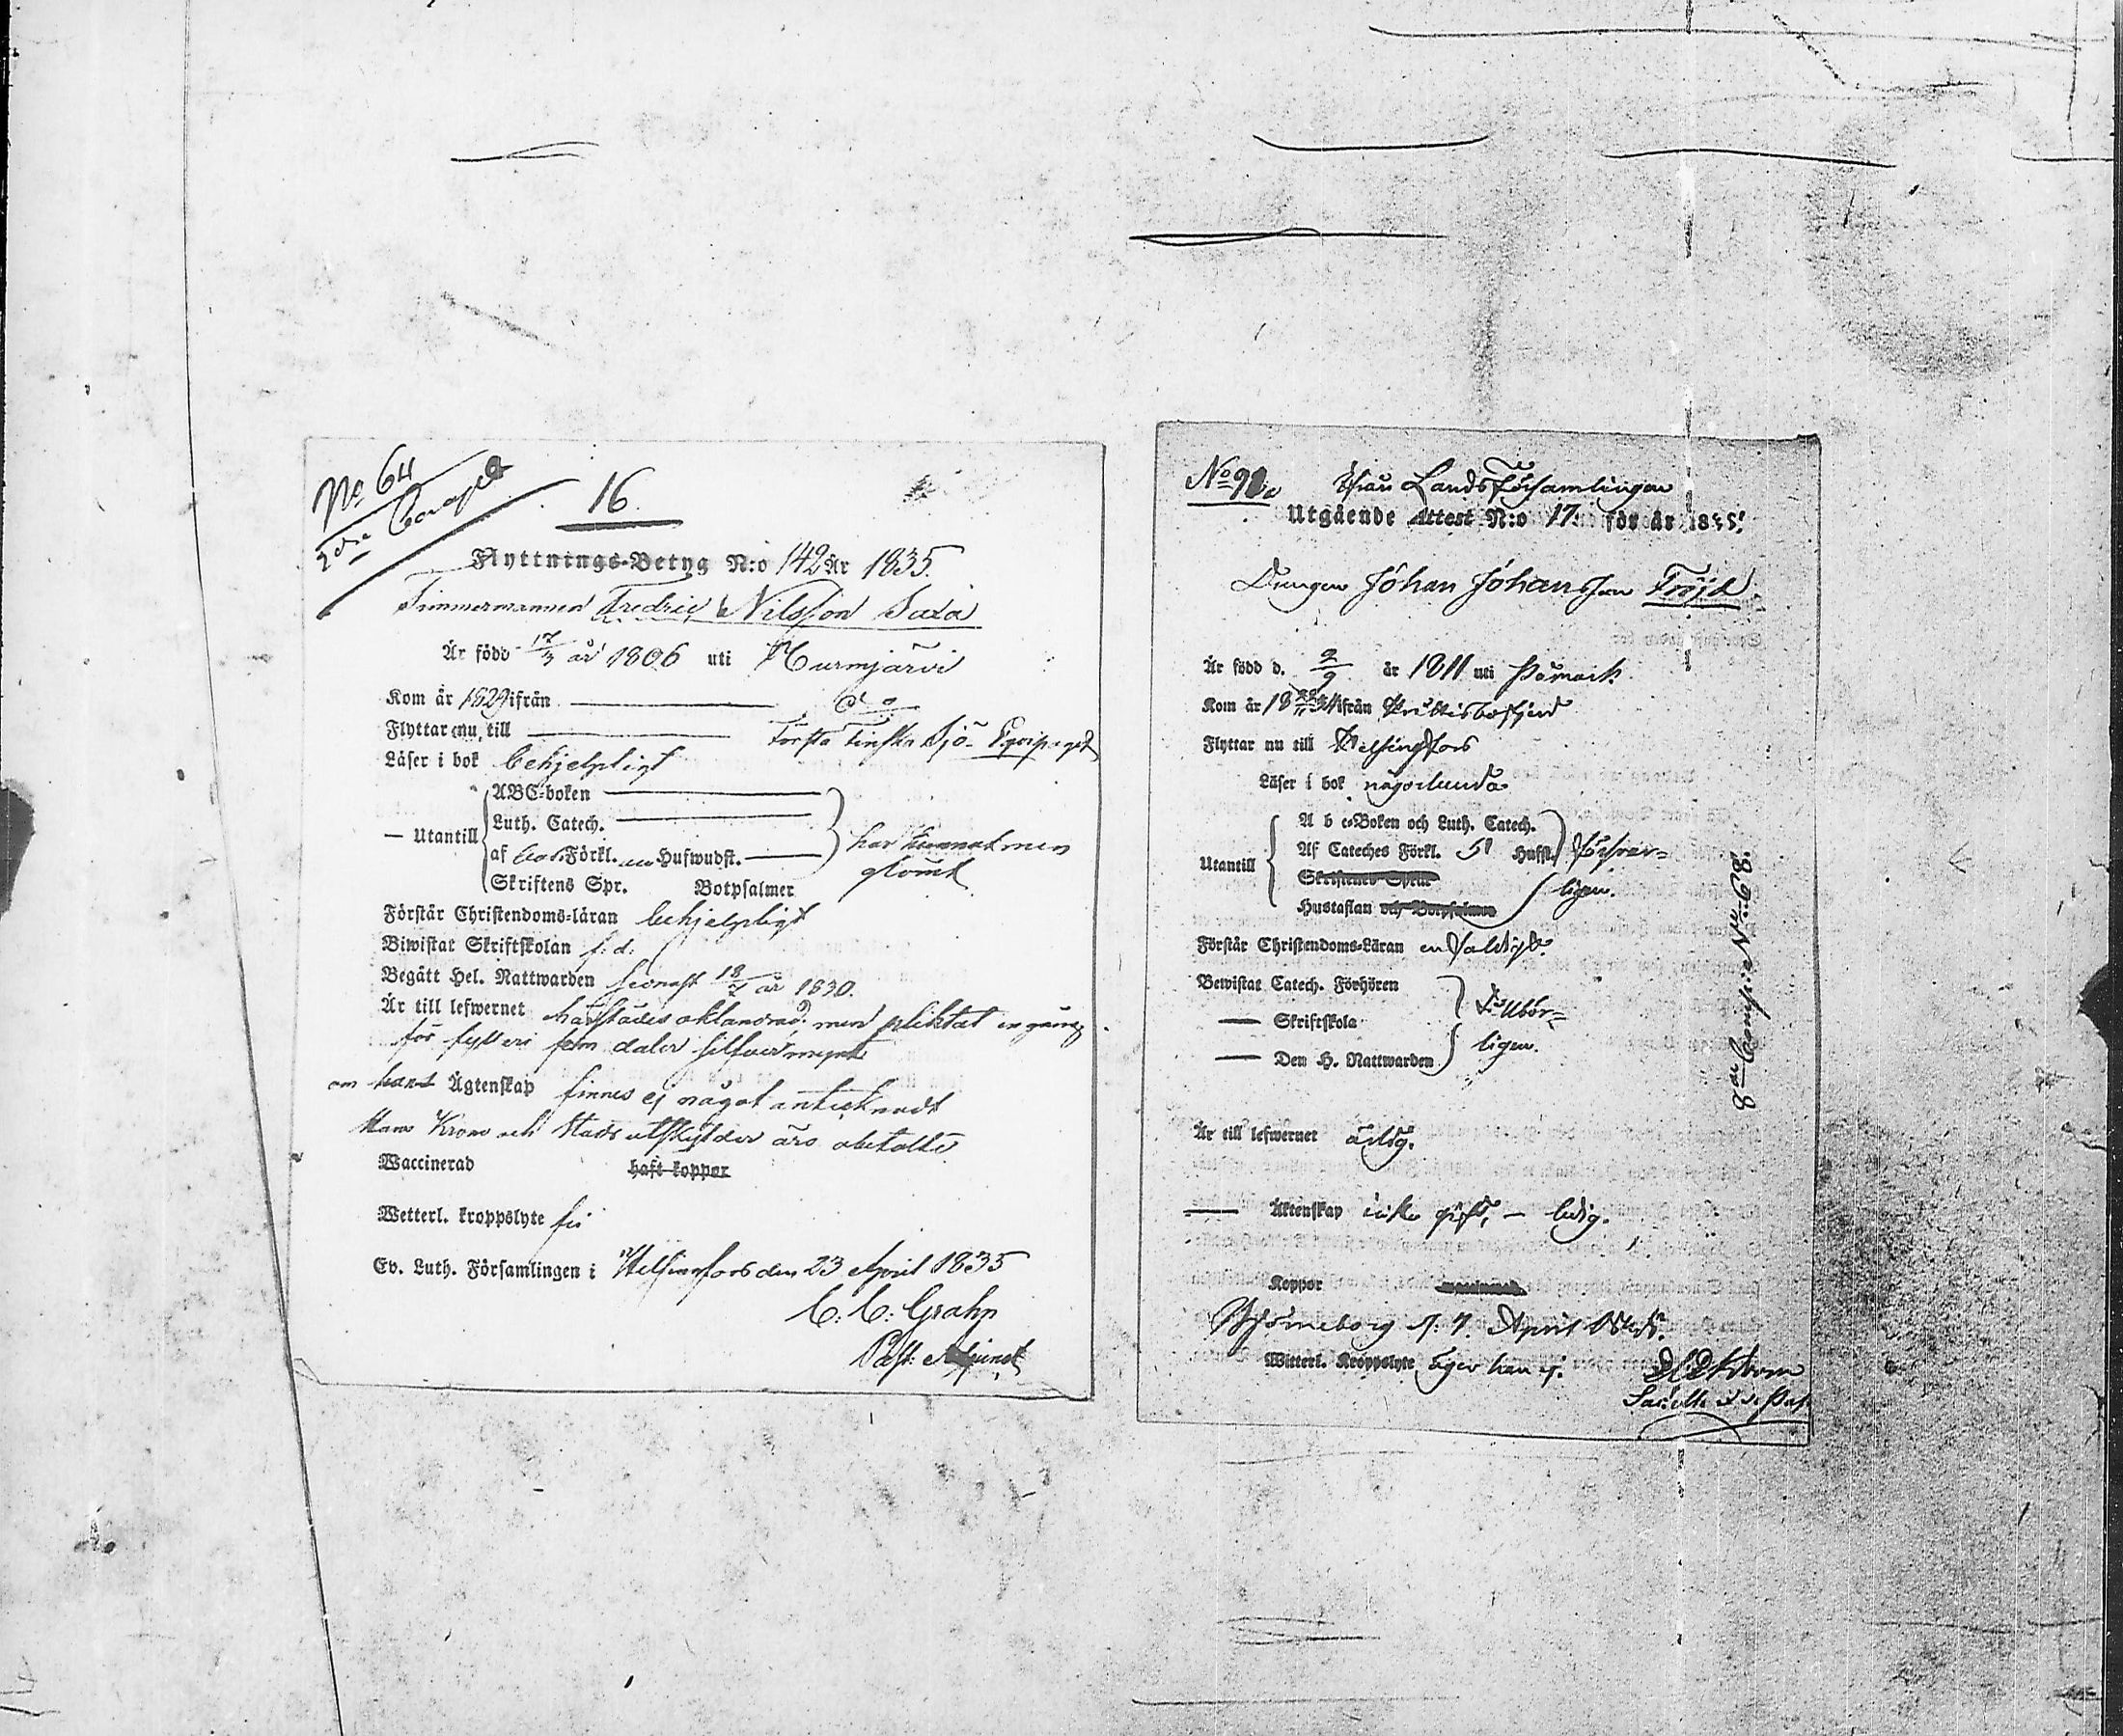 No 64
2dra Comp
16
Flyttnings-Betyg N:o 142 År 1835.
Timmermannen Fredric Nilsson Saxa
Är född 17/3 år 1806 uti Nurmjärvi
Kom år 1829 ifrån do
Flyttar nu till Första Finska Sjö-Equipaget
Läser i bok behjelpligt
ABC-boken
Luth. Catech.
— Utantill af Förkl. Hufwudst. har kunnat men
Skriftens Spr. Botpsalmer glömt
Förstår Christendoms-läran behjelpligt
Biwistat Skriftskolan f. d.
Begått Hel. Nattwarden senast 18/4 år 1830.
Är till lefwernet härstädes oklandrad men pliktat en gång
för fylleri fem daler silfwermynt
om hans Ägtenskap finnes ej något antecknadt
Hans Krono och Stads utskylder äro obetalte
Waccinerad haft koppor
Wetterl. kroppslyte fri
Ev. Luth. Församlingen i Helsingfors den 23 April 1835
C. C. Grahn
Past. Adjunct
No 98.
Ifrån Lands Församlingen
Utgående Attest N:o 17. för år 1845.
Drengen Johan Johansson Fröjd.
Är född d. 2/9 år 1811 uti Påmark
Kom år 18 ifrån
Flyttar nu till Helsingfors
Läser i bok någorlunda
A b c-Boken och Luth. Catech.
Utantill Af Cateches Förkl. 5 Hufst. försvar-
Skriftenes Språk
Hustaflan och Botpsalmer ligen.
Förstår Christendoms-Läran enfaldigt.
Bewistat Catech. Förhören
— Skriftskola tillbör-
— Den H. Nattwarden ligen.
Är till lefwernet ärlig.
— Äktenskap icke gift, — ledig.
Koppor
Björneborg d. 7. April 1845.
Witterl. Kroppslyte äger han ej.
8de Comp: No: 68.